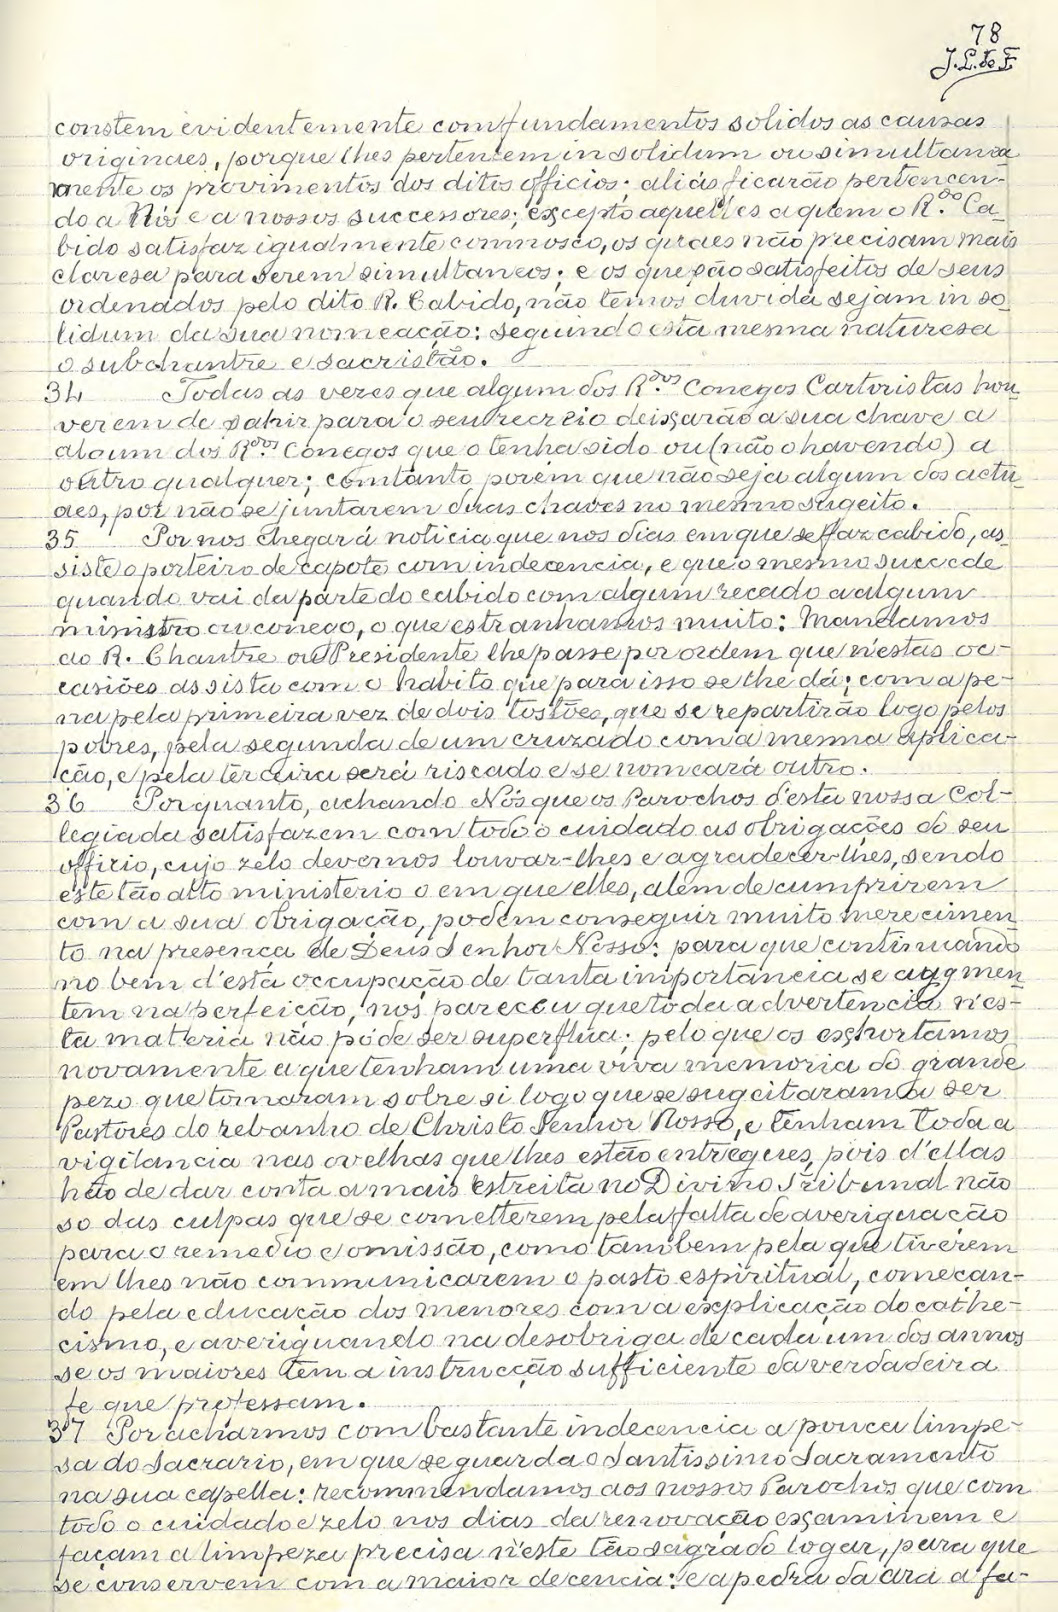 78
J. L. de F
constem evidentemente com fundamentos solidos as causas
originaes, porque lhes pertencem in solidum ou simultanea
mente os provimentos dos ditos officios: aliás ficarão pertencen-
do a Nós e a nossos successores; excepto aquelles a quem o R.do Ca-
bido satisfaz igualmente comnosco, os quaes não precisam mais
claresa para serem simultaneos; e os que são satisfeitos de seus
ordenados pelo dito R. Cabido, não temos duvida sejam in so-
lidum da sua nomeação: seguindo esta mesma naturesa
o subchantre e sacristão.
34 Todas as vezes que algum dos R.dos Conegos Cartoristas hou-
verem de sahir para o seu recreio deixarão a sua chave a
algum dos R.dos Conegos que o tenha sido ou (não o havendo) a
outro qualquer; comtanto porem que não seja algum dos actu-
aes, por não se juntarem duas chaves no mesmo sugeito.
35 Por nos chegar á noticia que nos dias em que se faz cabido, as-
siste o porteiro de capote com indecencia, e que o mesmo succede
quando vai da parte do cabido com algum recado a algum
ministro ou conego, o que estranhamos muito: Mandamos
ao R. Chantre ou Presidente lhe passe por ordem que n'estas oc-
casiões assista com o habito que para isso se lhe dá; com a pe-
na pela primeira vez de dois tostões, que se repartirão logo pelos
pobres, pela segunda de um cruzado com a mesma aplica-
ção, e pela terceira será riscado e se nomeará outro.
36 Por quanto, achando Nós que os Parochos d'esta nossa Col-
legiada satisfazem com todo o cuidado as obrigações do seu
officio, cujo zelo devemos louvar-lhes e agradecer-lhes, sendo
este tão alto ministerio o em que elles, alem de cumprirem
com a sua obrigação, podem conseguir muito merecimen-
to na presença de Deus Senhor Nosso: para que continuando
no bem d'esta occupação de tanta importancia se augmen-
tem na perfeição, nos pareceu que toda advertencia n'es-
ta materia não póde ser superflua; pelo que os exhortamos
novamente a que tenham uma viva memoria do grande
pezo que tomaram sobre si logo que se sugeitaram a ser
Pastores do rebanho de Christo Senhor Nosso, e tenham toda a
vigilancia nas ovelhas que lhes estão entregues, pois d'ellas
hão de dar conta a mais estreita no Divino Tribunal não
so das culpas que se cometterem pela falta de averiguação
para o remedio e omissão, como tambem pela que tiverem
em lhes não communicarem o pasto espiritual, começan-
do pela educação dos menores com a explicação do cathe-
cismo, e averiguando na desobriga de cada um dos annos
se os maiores tem a instrucção sufficiente da verdadeira
fe que professam.
37 Por acharmos com bastante indecencia a pouca limpe-
sa do Sacrario, em que se guarda o Santissimo Sacramento
na sua capella: recommendamos aos nossos Parochos que com
todo o cuidado e zelo nos dias da renovação examinem e
façam a limpeza precisa n'este tão sagrado logar, para que
se conservem com a maior decencia: e a pedra da ara a fa-